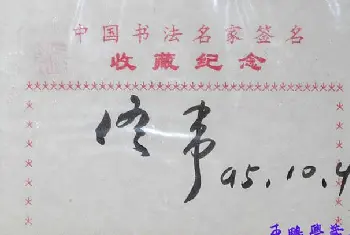 中国书法名家签名
收藏纪念
佟韦 95.10.4